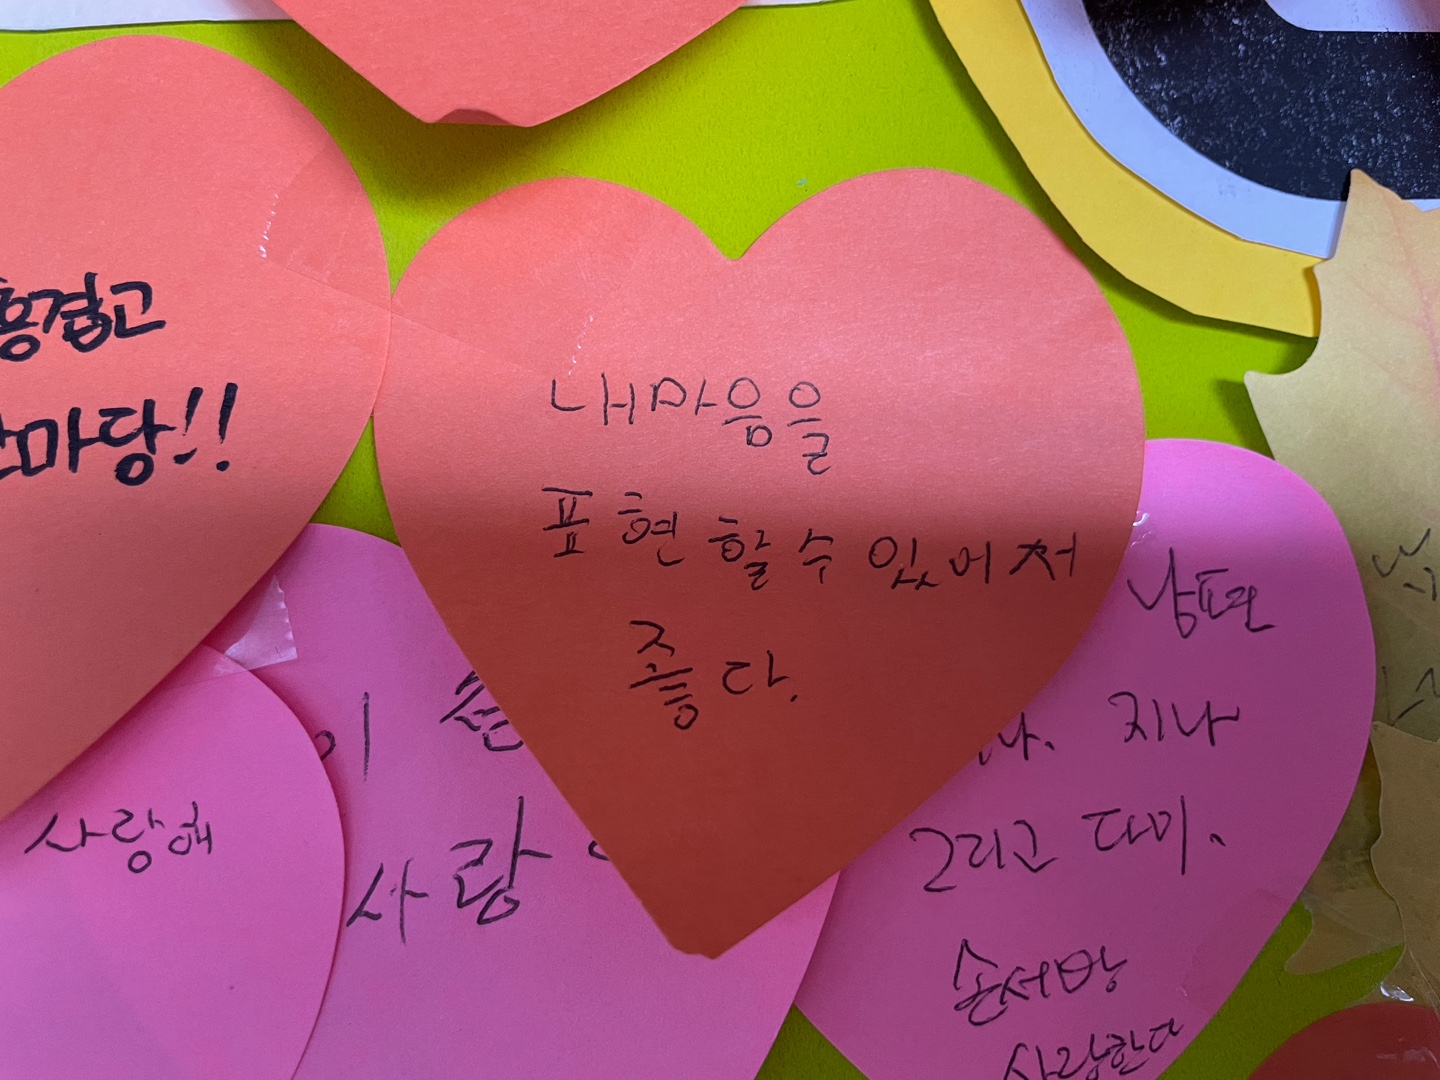 흥겹고
마당!!
내마음을
표현할수 있어서
좋다.
이
사랑
사랑해
남편
지나
그리고 다미.
손서방
사랑한다